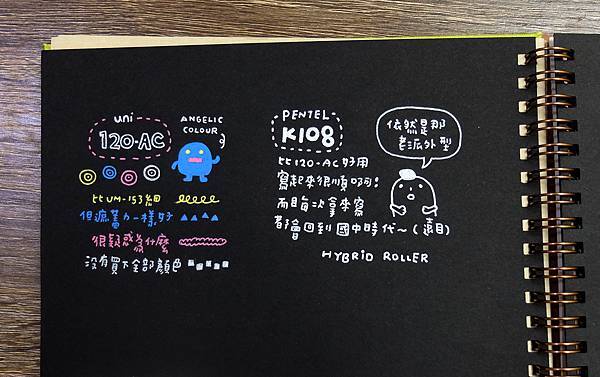 uni
120-AC
ANGELIC
COLOUR
比UM-153細
但遮蓋力一樣好
很疑惑為什麼
沒有買下全部顏色
PENTEL
K108
比120-AC好用
寫起來很順啊!
而每次拿來寫
都會回到國中時代~(遠目)
HYBRID ROLLER
依然是那
老派外型